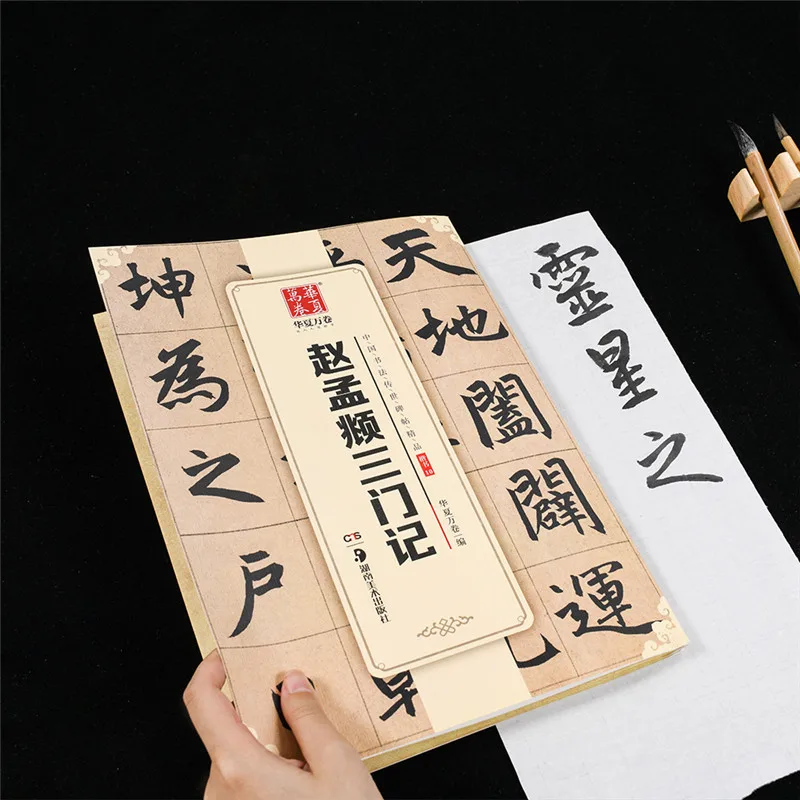 天地闔闢運
坤為之戶
華夏萬卷
华夏万卷
中国书法传世碑帖精品
楷书 10
赵孟𫖯三门记
华夏万卷 编
湖南美术出版社
靈星之